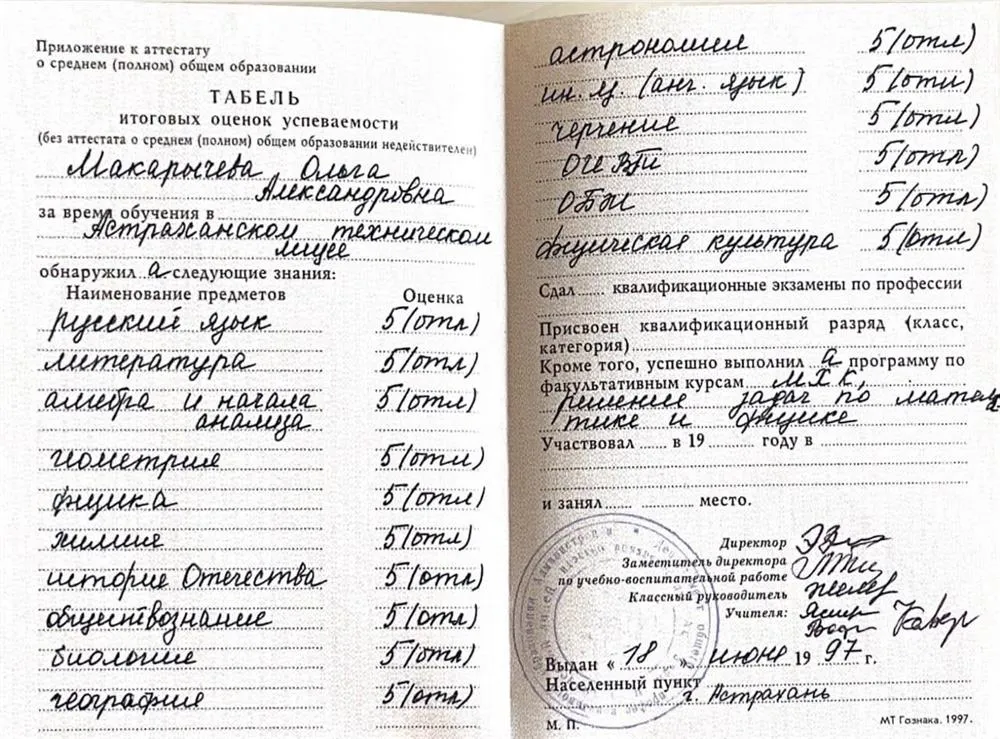 Приложение к аттестату
о среднем (полном) общем образовании
ТАБЕЛЬ
итоговых оценок успеваемости
(без аттестата о среднем (полном) общем образовании недействителен)
Макарычева Ольга
Александровна
за время обучения в
Астраханском техническом
лицее
обнаружил а следующие знания:
Наименование предметов Оценка
русский язык 5 (отл)
литература 5 (отл)
алгебра и начала 5 (отл)
анализа
геометрия 5 (отл)
физика 5 (отл)
химия 5 (отл)
история Отечества 5 (отл)
обществознание 5 (отл)
биология 5 (отл)
география 5 (отл)
астрономия 5 (отл)
ин. яз. (анг. язык) 5 (отл)
черчение 5 (отл)
ОИВТ 5 (отл)
ОБЖ 5 (отл)
физическая культура 5 (отл)
Сдал ...... квалификационные экзамены по профессии
Присвоен квалификационный разряд (класс,
категория)
Кроме того, успешно выполнил а программу по
факультативным курсам МХК,
решение задач по матема
тике и физике
Участвовал ...... в 19 ...... году в
и занял ...... место.
Директор
Заместитель директора
по учебно-воспитательной работе
Классный руководитель
Учителя:
Выдан « 18 » июня 19 97 г.
Населенный пункт
г. Астрахань
М. П.
МТ Гознака. 1997.